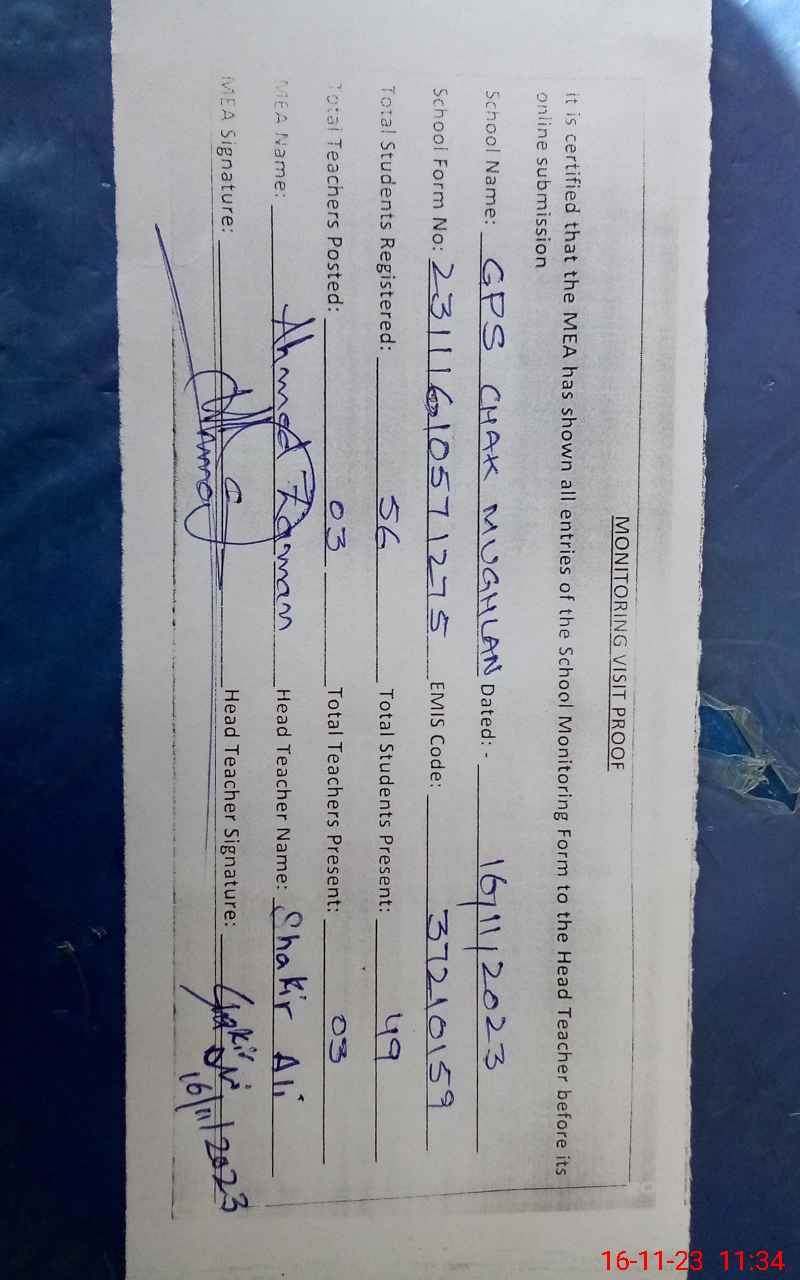 MONITORING VISIT PROOF
it is certified that the MEA has shown all entries of the School Monitoring Form to the Head Teacher before its
online submission
School Name: GPS CHAK MUGHLAN Dated: - 16/11/2023
School Form No: 23111610571275 EMIS Code: 37210159
Total Students Registered: 56 Total Students Present: 49
Total Teachers Posted: 03 Total Teachers Present: 03
MEA Name: Ahmed Zaman Head Teacher Name: Shakir Ali
MEA Signature: Head Teacher Signature: Shakir Ali
16/11/2023
16-11-23 11:34